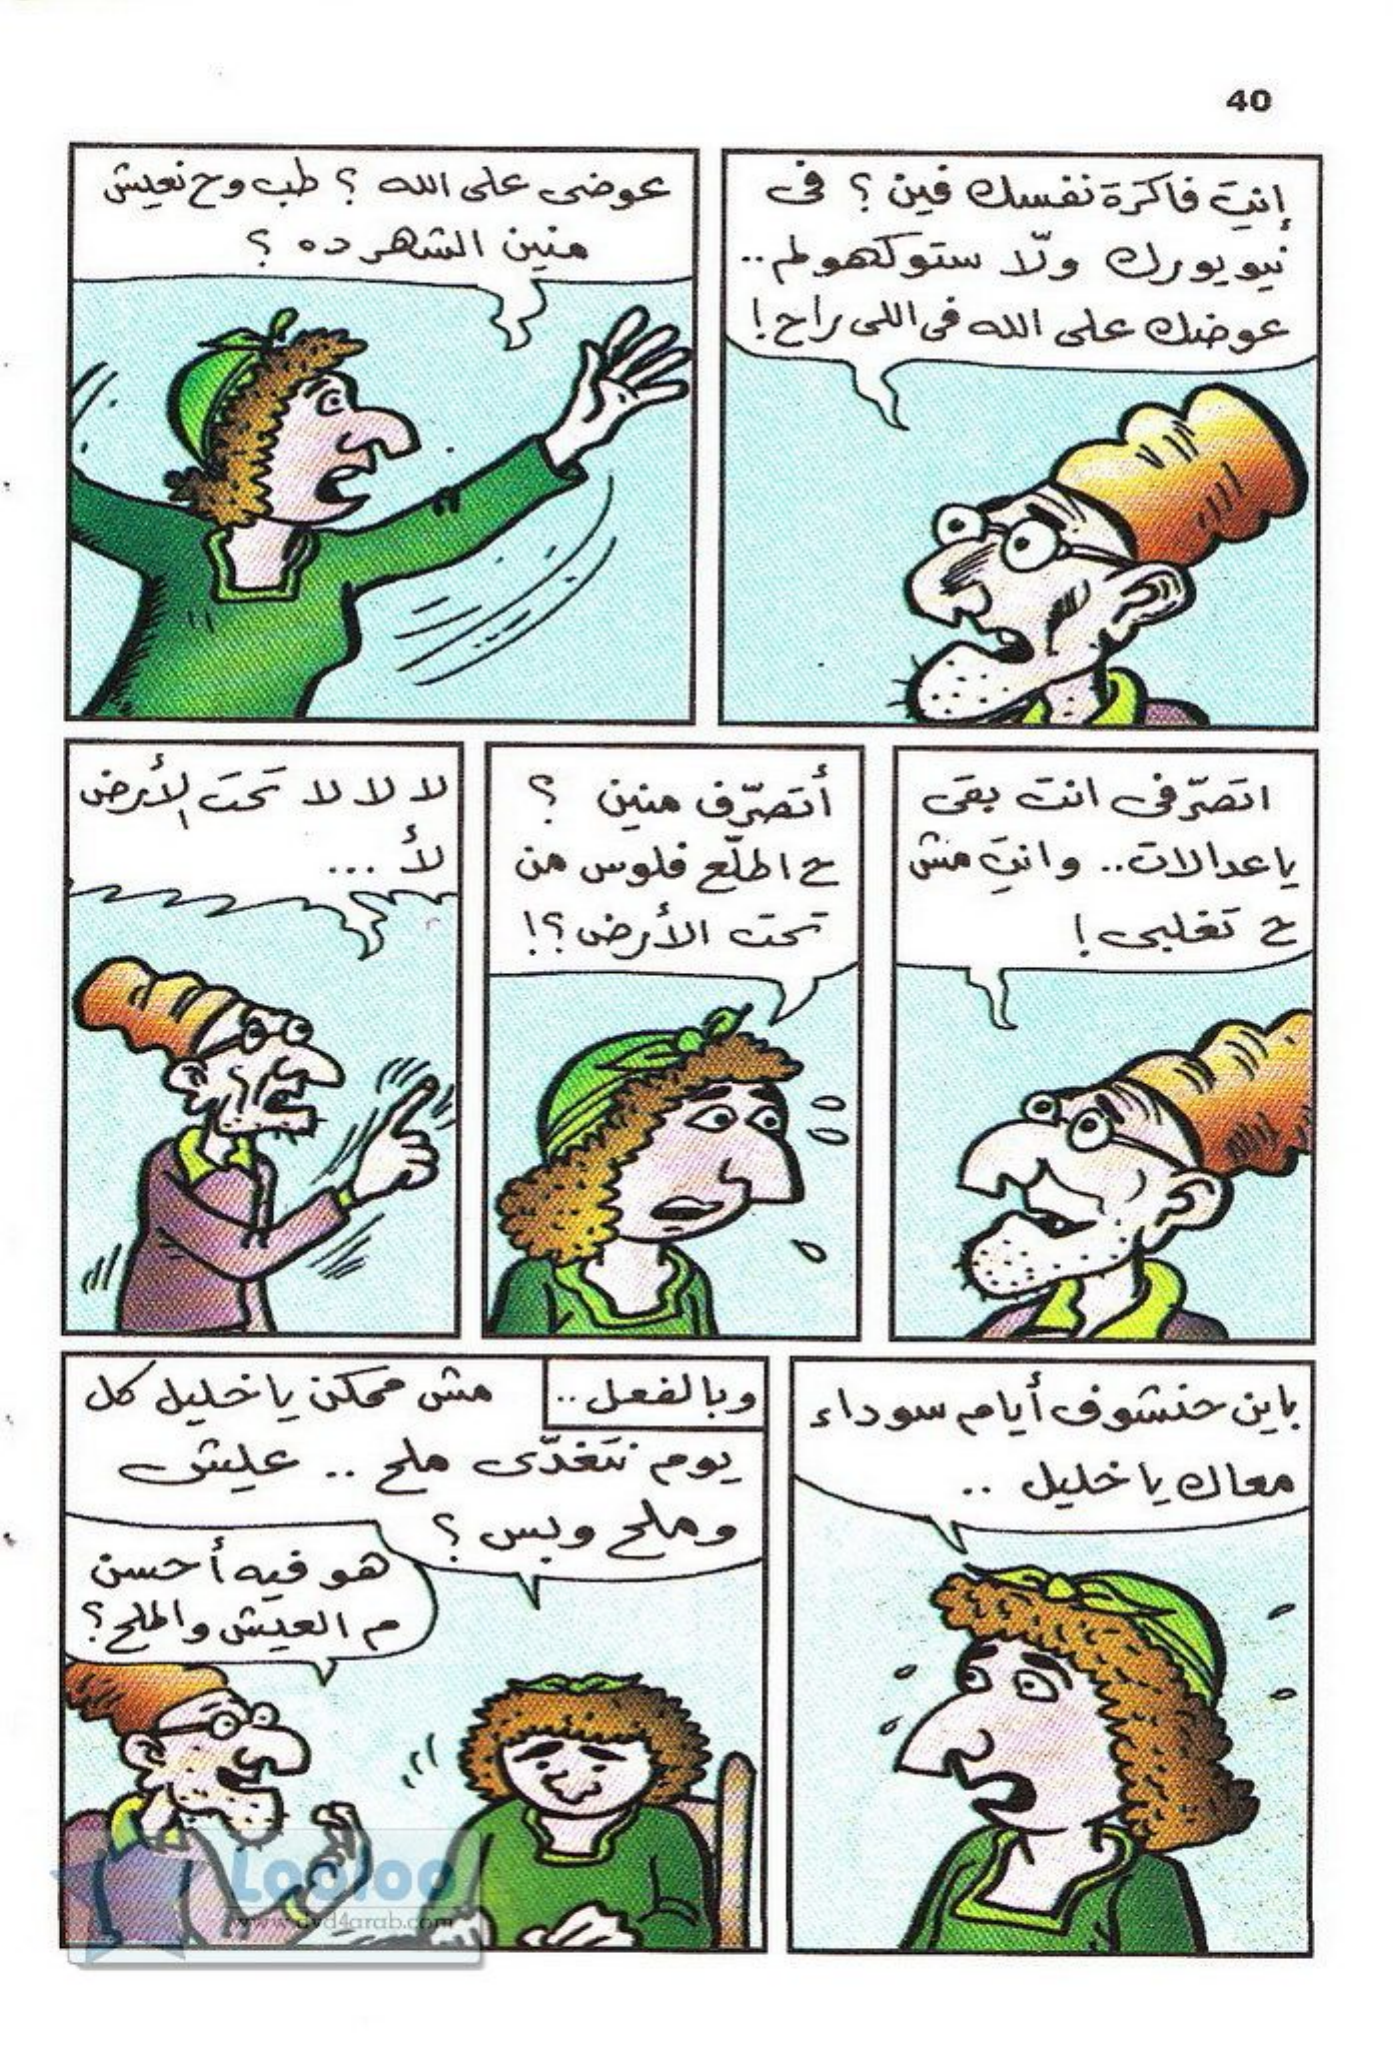 40
إنتِ فاكرة نفسك فين؟ فى
نيويورك ولّا ستوكهولم..
عوضك على الله فى اللى راح!
عوضى على الله؟ طب وح نعيش
منين الشهر ده؟
اتصرّفى انت بقى
ياعدالات.. وانتِ مش
ح تغلبى!
أتصرّف منين؟
ح اطلّع فلوس من
تحت الأرض؟!
لا لا لا تحت الأرض
لأ ...
باين حنشوف أيام سوداء
معاك ياخليل ..
وبالفعل..
مش ممكن ياخليل كل
يوم نتغدّى ملح .. عيش
وملح وبس؟
هو فيه أحسن
م العيش والملح؟
Looloo
www.dvd4arab.com